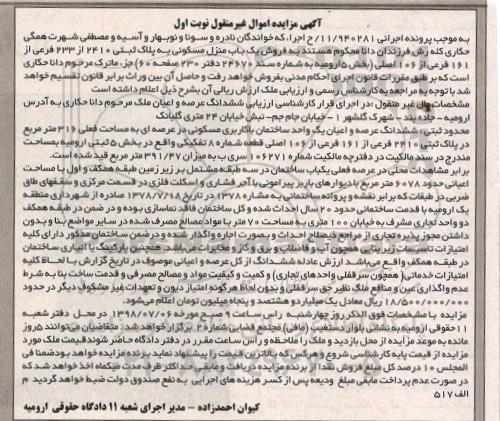 آگهی مزایده اموال غیرمنقول نوبت اول
به موجب پرونده اجرائی ۱۱/۹۴۰۲۸۱ ج اجراء که خواندگان نادره و سونا و نوبهار و آسیه و مصطفی شهرت همگی
حکاری کله رش فرزندان دانا محکوم هستند به فروش یک باب منزل مسکونی به پلاک ثبتی ۲۴۱۰ از ۲۳۳ فرعی از
۱۶۱ فرعی از ۱۰۶ اصلی (بخش ۵ ارومیه به شماره سند ۲۴۶۷۰ دفتر ۲۳۰ صفحه ۶۰) جز، ماترک مرحوم دانا حکاری
است که بر طبق مقررات قانون اجرای احکام مدنی بفروش خواهد رفت و حاصل آن بین وراث برابر قانون تقسیم خواهد
شد با توجه به مراجعه به کارشناس رسمی و ارزیابی ملک ارزش ریالی آن بشرح ذیل اعلام داشته است
مشخصات مال غیر منقول :در اجرای قرار کارشناسی ارزیابی ششدانگ عرصه و اعیان ملک مرحوم دانا حکاری به آدرس
ارومیه - جاده بند - شهرک گلشهر ۱ - خیابان جام جم- نبش خیابان ۲۴ متری گلبانگ
محدود ثبتی : ششدانگ عرصه و اعیان یک واحد ساختمان باکاربری مسکونی در عرصه ای به مساحت فعلی ۳۱۶ متر مربع
در پلاک ثبتی ۲۴۱۰ فرعی از ۱۶۱ فرعی از ۱۰۶ اصلی قطعه شماره ۸ تفکیکی واقع در بخش ۵ ثبتی ارومیه بمساحت
مندرج در سند مالکیت در دفترچه مالکیت شماره ۱۰۶۲۷۱ سری ب به میزان ۳۹۱/۴۷ متر مربع قید شده است.
برابر مشاهدات محلی در عرصه فعلی یکباب ساختمان در سه طبقه مشتمل بر زیر زمین طبقه همکف و اول با مساحت
اعیانی حدود ۶۰۷۸ متر مربع با دیوارهای باربر پیرامونی با آجر فشاری و اسکلت فلزی در قسمت مرکزی و سقفهای طاق
ضربی در طبقات که برابر نقشه و پروانه ساختمانی به شماره ۱۳۷۸ در تاریخ ۱۳۷۸/۷/۱۸ صادره از شهرداری منطقه
یک ارومیه با قدمت ساختمانی حدود ۲۰ سال احداث شده و کل ساختمان فاقد نماسازی بوده و در ضمن در طبقه همکف
دو واحد تجاری مشرف به خیابان ۱۰۰ متری به مساحت ۷۰ متر با مواد مصالح مصرف شده در سایر مواضع بنا و بدون
داشتن مجوز پذیره تجاری از مراجع ذیصلاح احداث و بصورت اجاره واگذار شده و در ضمن ساختمان مذکور دارای کلیه
امتیازات تاسیسات زیر بنایی همچون آب و فاضلاب و برق و گاز و مخابرات می باشد. همچنین پارکینگ یا انباری ساختمان
در طبقه همکف واقع می باشد ارزش عادله ششدانگ از کل عرصه و اعیانی موصوف در تاریخ گزارش با لحاظ کلیه
امتیازات خدماتی( همچون سرقفلی واحدهای تجاری) و کمیت و کیفیت مواد و مصالح مصرفی و قدمت ساخت بنا به شرط
عدم واگذاری عین و منافع ملک نظیر حق سرقفلی و بدون لحاظ هرگونه امتیاز دیون و تعهدات غیر مشکوف دیگر در حدود
۱۸/۵۰۰/۰۰۰/۰۰۰ ریال معادل یک میلیارد و هشتصد و پنجاه میلیون تومان اعلام می شود.
مزایده با مشخصات فوق الذکر روز چهارشنبه راس ساعت ۹ صبح مورخه ۱۳۹۸/۰۷/۰۶ در محل دفتر شعبه
۱۱ حقوقی ارومیه به نشانی بلوار دستغیب (مافی) مجتمع قضایی شماره ۲ برگزار خواهد شد، متقاضیان می توانند ۵ روز
مانده به موعد مزایده از محل بازدید و ملک را ملاحظه و راس ساعت مقرر در دفتر دادگاه حاضر شوند قیمت ملک مورد
مزایده از قیمت پایه کارشناسی شروع و هرکس که بالاترین قیمت را پیشنهاد نماید برنده مزایده خواهد بود ضمنا فی
المجلس ۱۰ درصد کل مبلغ فروش نقدا از برنده مزایده دریافت و مابقی حداکثر ظرف مدت میکماه اخذ خواهد شد که
در صورت عدم پرداخت مابقی مبلغ ودیعه پس از کسر هزینه های اجرایی به نفع صندوق دولت ضبط خواهد گردید م
الف ۵۱۷
کیوان احمدزاده - مدیر اجرای شعبه ۱۱ دادگاه حقوقی ارومیه